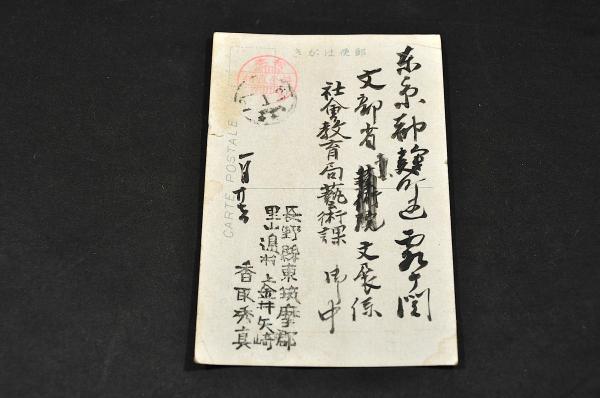 郵便はがき
東京都麹町區霞ヶ関
文部省 文展係
社會教育局藝術課 御中
長野縣東筑摩郡
里山邉村上金井矢崎
香取秀真
CARTE POSTALE